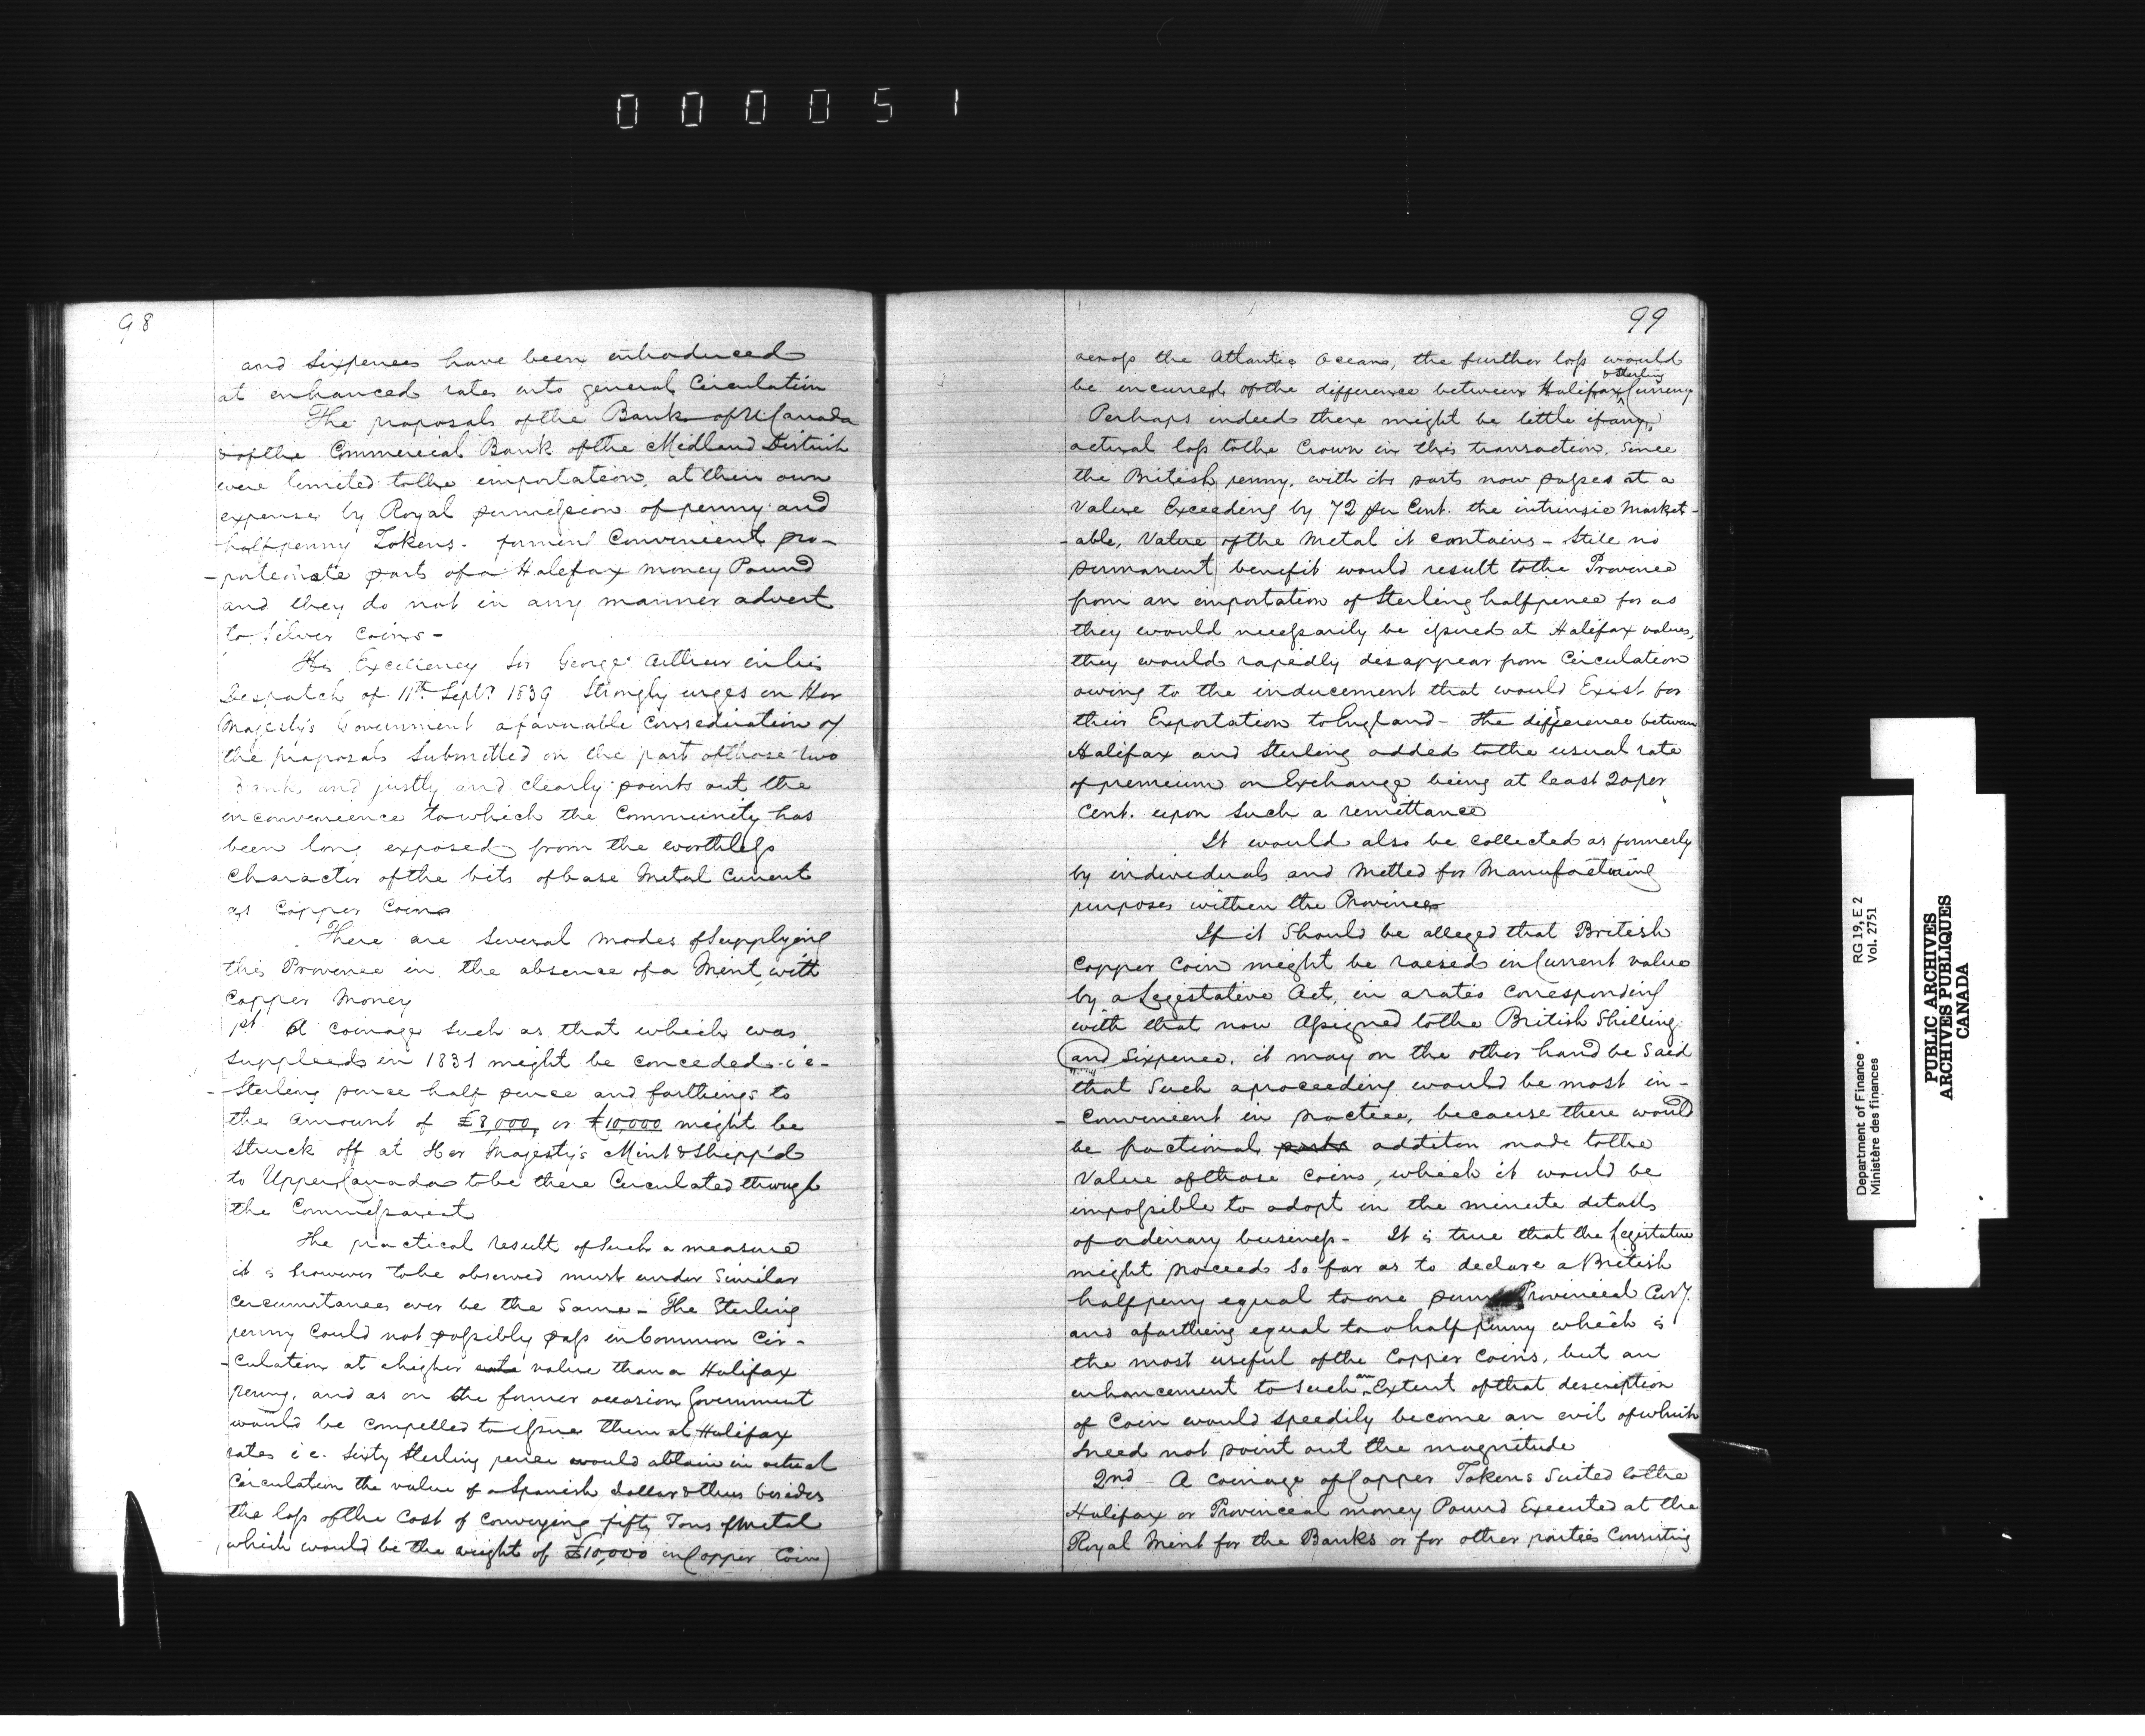 000051
98
and Sixpences have been introduced
at enhanced rates into general Circulation
The proposals of the Bank of U Canada
& of the Commercial Bank of the Midland District
were limited to the importation, at their own
expense by Royal permission of penny and
halfpenny Tokens - forming Convenient pro-
-portionate parts of a Halifax money Pound
and they do not in any manner advert
to Silver Coins -
His Excellency Sir George Arthur in his
Despatch of 11th Sept. 1839 Strongly urges on Her
Majesty's Government a favourable Consideration of
the proposals Submitted on the part of those two
Banks and justly and clearly points out the
inconvenience to which the Community has
been long exposed from the worthless
Character of the bits of base Metal Current
as Copper Coin
There are Several modes of Supplying
this Province in the absence of a Mint with
Copper Money
1st A coinage Such as that which was
Supplied in 1831 might be conceded i e -
- Sterling pence half pence and farthings to
the amount of £8,000, or £10,000 might be
Struck off at Her Majesty's Mint & Shipp'd
to Upper Canada to be there Circulated through
the Commissariat
The practical result of Such a measure
it is however to be observed must under Similar
circumstances ever be the Same - The Sterling
penny Could not possibly pass in Common Cir-
- culation at a higher rate value than a Halifax
penny, and as on the former occasion Government
would be compelled to issue them at Halifax
rates i e. Sixty Sterling pence would obtain in actual
Circulation the value of a Spanish dollar & thus besides
the loss of the Cost of Conveying fifty Tons of Metal
which would be the weight of £10,000 in Copper Coin)
99
across the Atlantic Ocean, the further loss would
be incurred of the difference between Halifax & Sterling Currency
Perhaps indeed there might be little if any,
actual loss to the Crown in this transaction. Since
the British penny, with its parts now passes at a
Value Exceeding by 72 per Cent. the intrinsic Market-
-able, Value of the Metal it contains - Still no
permanent benefit would result to the Province
from an importation of Sterling halfpence for as
they would necessarily be issued at Halifax values,
they would rapidly disappear from Circulation
owing to the inducement that would Exist for
their Exportation to England - the difference between
Halifax and Sterling added to the usual rate
of premium on Exchange being at least 20 per
Cent. upon Such a remittance
It would also be collected as formerly
by individuals and Melted for Manufacturing
purposes within the Province
If it Should be alleged that British
Copper Coin might be raised in Current value
by a Legislative Act, in a ratio corresponding
with that now Assigned to the British Shilling
and Sixpence. it may on the other hand be Said
that Such a proceeding would be most in-
- convenient in practice, because there would
be fractional parts addition made to the
Value of those Coins, which it would be
impossible to adopt in the minute details
of ordinary business - It is true that the Legislature
might proceed So far as to declare a British
halfpenny equal to one penny Provincial Curry.
and a farthing equal to a halfpenny which is
the most useful of the Copper Coins, but an
enhancement to Such an Extent of that description
of Coin would Speedily become an evil of which
I need not point out the magnitude
2nd - A coinage of Copper Tokens Suited to the
Halifax or Provincial money Pound Executed at the
Royal Mint for the Banks or for other parties Consisting
Department of Finance
Ministère des finances
RG 19, E 2
Vol. 2751
PUBLIC ARCHIVES
ARCHIVES PUBLIQUES
CANADA